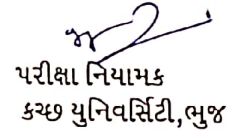 પરીક્ષા નિયામક
કચ્છ યુનિવર્સિટી,ભુજ